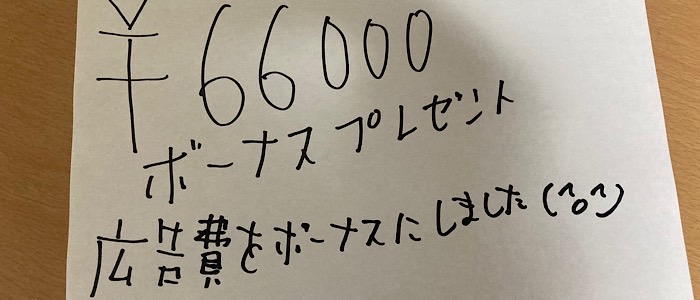 ¥66000
ボーナスプレゼント
広告費をボーナスにしました(^o^)